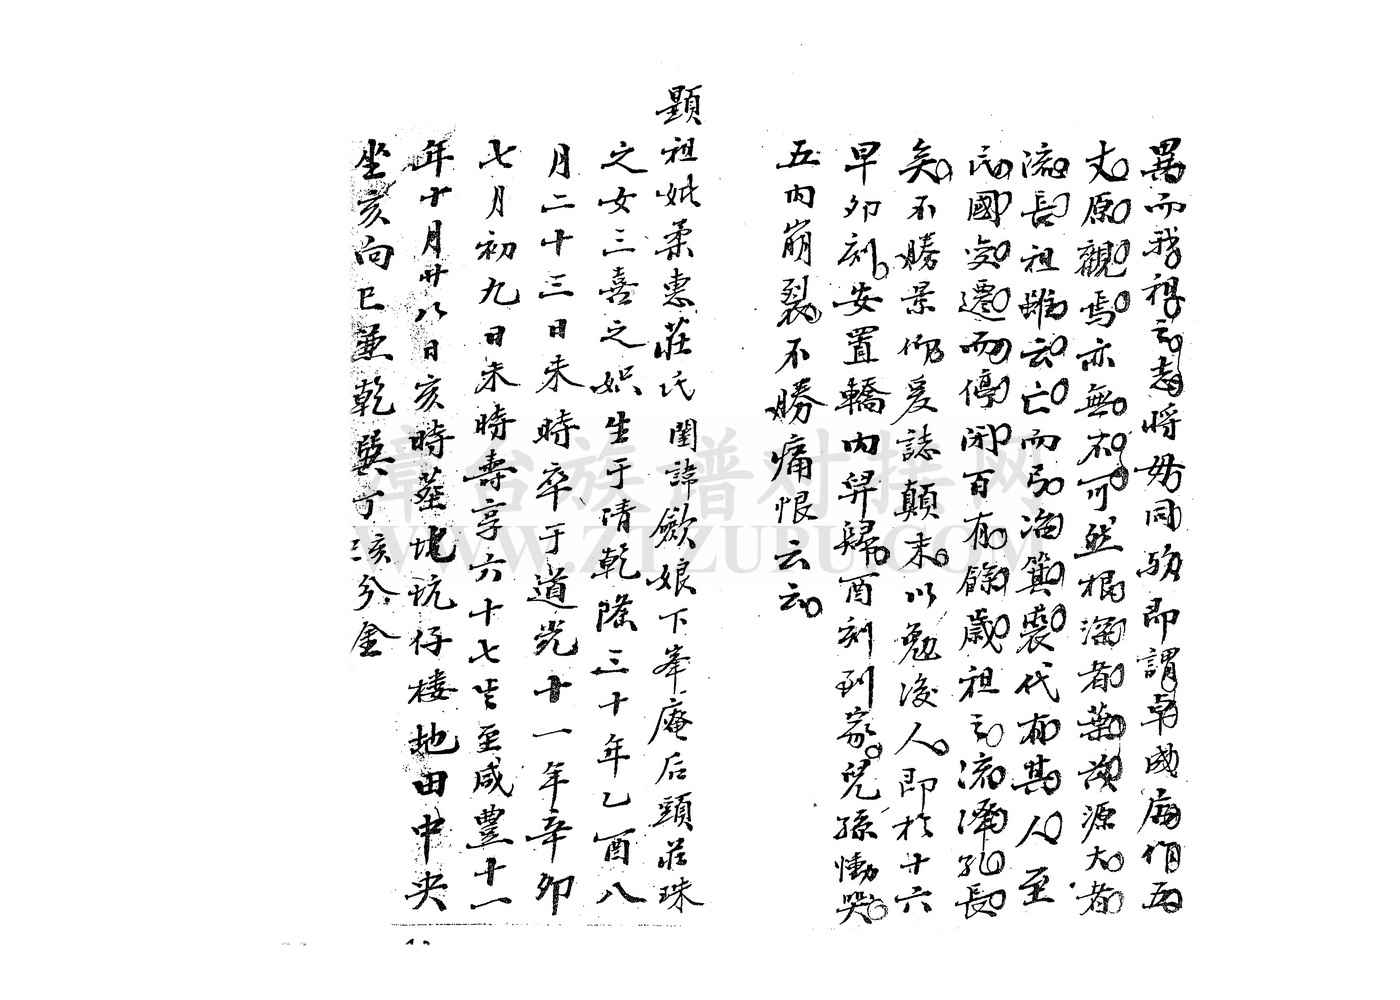 異而我祖之志將毋同歟即謂卓國廟作五
丈原觀焉亦無不可然根深者葉茂源大者
流長祖雖云亡而弓冶箕裘代有其人至
民國变遷而停閉百有餘歲祖之流澤孔長
矣不勝景仰爰誌顛末以勉後人即於廿六
早卯刻安置轎內舁歸酉刻到家兒孫慟哭
五內崩裂不勝痛恨云云
顯祖妣柔惠莊氏閨諱歛娘下峯庵后頭莊珠
之女三喜之妳生于清乾隆三十年乙酉八
月二十三日未時卒于道光十一年辛卯
七月初九日未時壽享六十七岁至咸豐十一
年十月廿八日亥時葬坑仔棲地田中央
坐亥向巳兼乾巽丁亥分金
漳台族谱对接网
WWW.ZTZUPU.COM